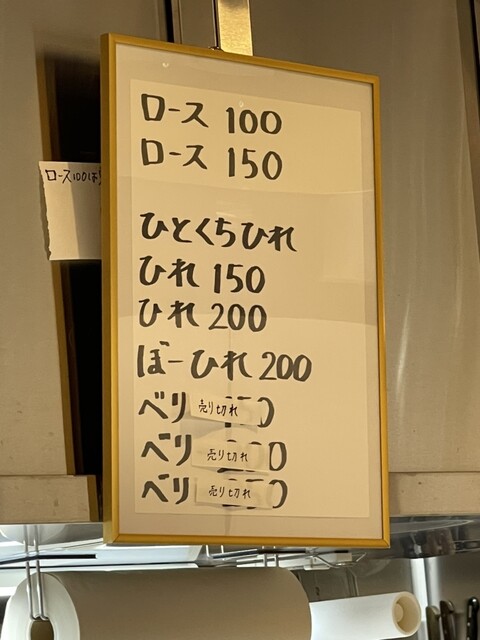 ロース 100
ロース 150
ロース100は
ひとくちひれ
ひれ 150
ひれ 200
ぼーひれ 200
べリ 売り切れ
べリ 売り切れ
べリ 売り切れ